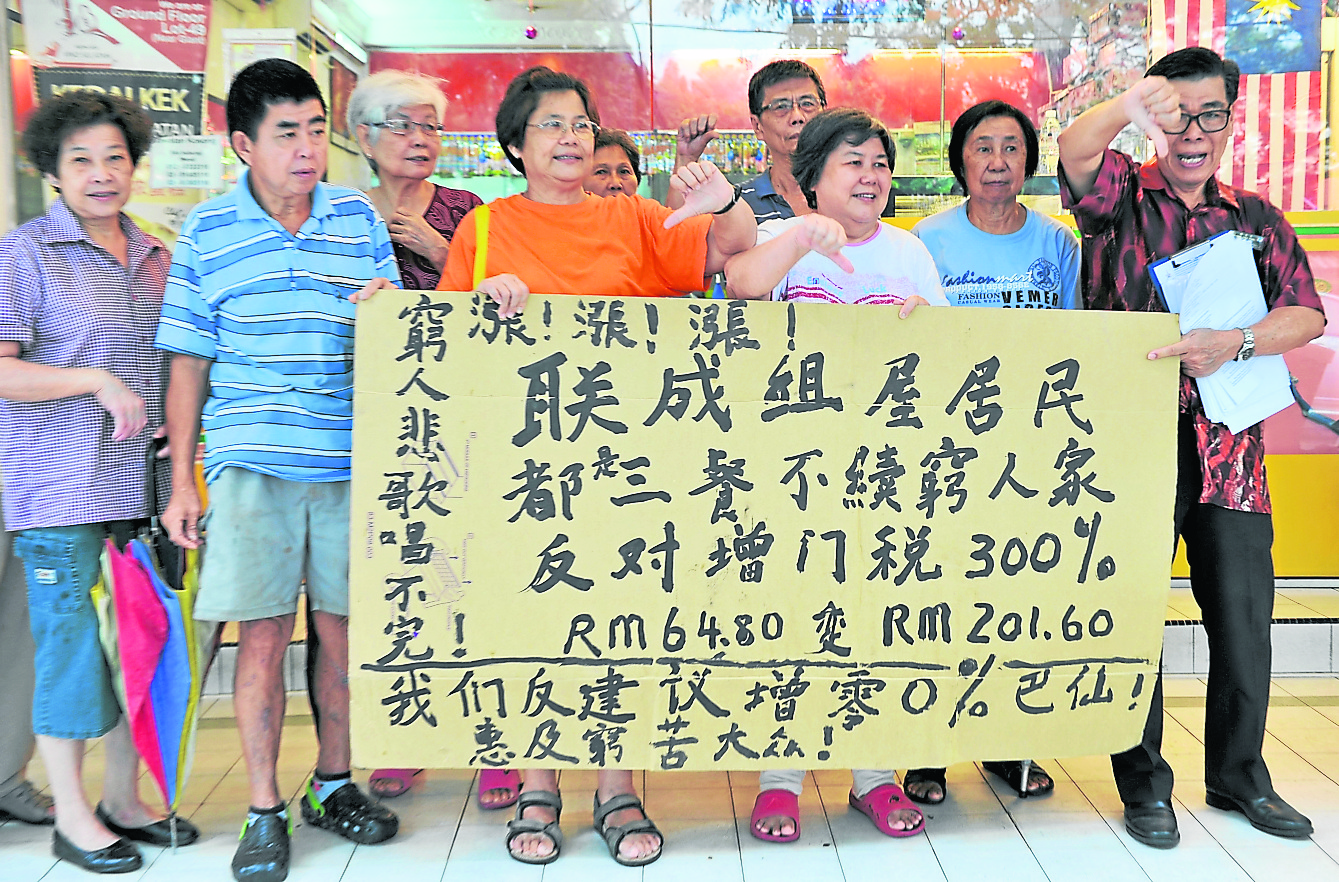 We are at:
Ground Floor
Lot-49
KEDAI KEK
fashionmart
FASHION
CASUAL WEAR
漲！漲！漲！
窮人悲歌唱不完！
联成组屋居民
都是三餐不續窮人家
反对增门税300%
RM64.80变RM201.60
我们反建议增零0%巴仙！
惠及窮苦大众！